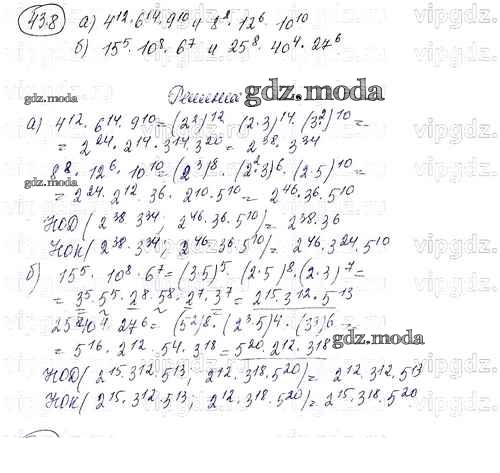 43.8 а) 4¹² · 6¹⁴ · 9¹⁰ и 8⁸ · 12⁶ · 10¹⁰
б) 15⁵ · 10⁸ · 6⁷ и 25⁸ · 40⁴ · 27⁶
gdz.moda
Решение gdz.moda
а) 4¹² · 6¹⁴ · 9¹⁰ = (2²)¹² · (2·3)¹⁴ · (3²)¹⁰ =
= 2²⁴ · 2¹⁴ · 3¹⁴ · 3²⁰ = 2³⁸ · 3³⁴
8⁸ · 12⁶ · 10¹⁰ = (2³)⁸ · (2²·3)⁶ · (2·5)¹⁰ =
= 2²⁴ · 2¹² · 3⁶ · 2¹⁰ · 5¹⁰ = 2⁴⁶ · 3⁶ · 5¹⁰
НОД (2³⁸ 3³⁴; 2⁴⁶ · 3⁶ · 5¹⁰) = 2³⁸ · 3⁶
НОК (2³⁸ · 3³⁴; 2⁴⁶ · 3⁶ · 5¹⁰) = 2⁴⁶ · 3²⁴ · 5¹⁰
б) 15⁵ · 10⁸ · 6⁷ = (3·5)⁵ · (2·5)⁸ · (2·3)⁷ =
= 3⁵ · 5⁵ · 2⁸ · 5⁸ · 2⁷ · 3⁷ = 2¹⁵ · 3¹² · 5¹³
25⁸ 40⁴ · 27⁶ = (5²)⁸ · (2³·5)⁴ · (3³)⁶ =
gdz.moda
= 5¹⁶ · 2¹² · 5⁴ · 3¹⁸ = 5²⁰ · 2¹² · 3¹⁸
НОД (2¹⁵ · 3¹² · 5¹³; 2¹² · 3¹⁸ · 5²⁰) = 2¹² · 3¹² · 5¹³
НОК (2¹⁵ · 3¹² · 5¹³; 2¹² · 3¹⁸ · 5²⁰) = 2¹⁵ · 3¹⁸ · 5²⁰